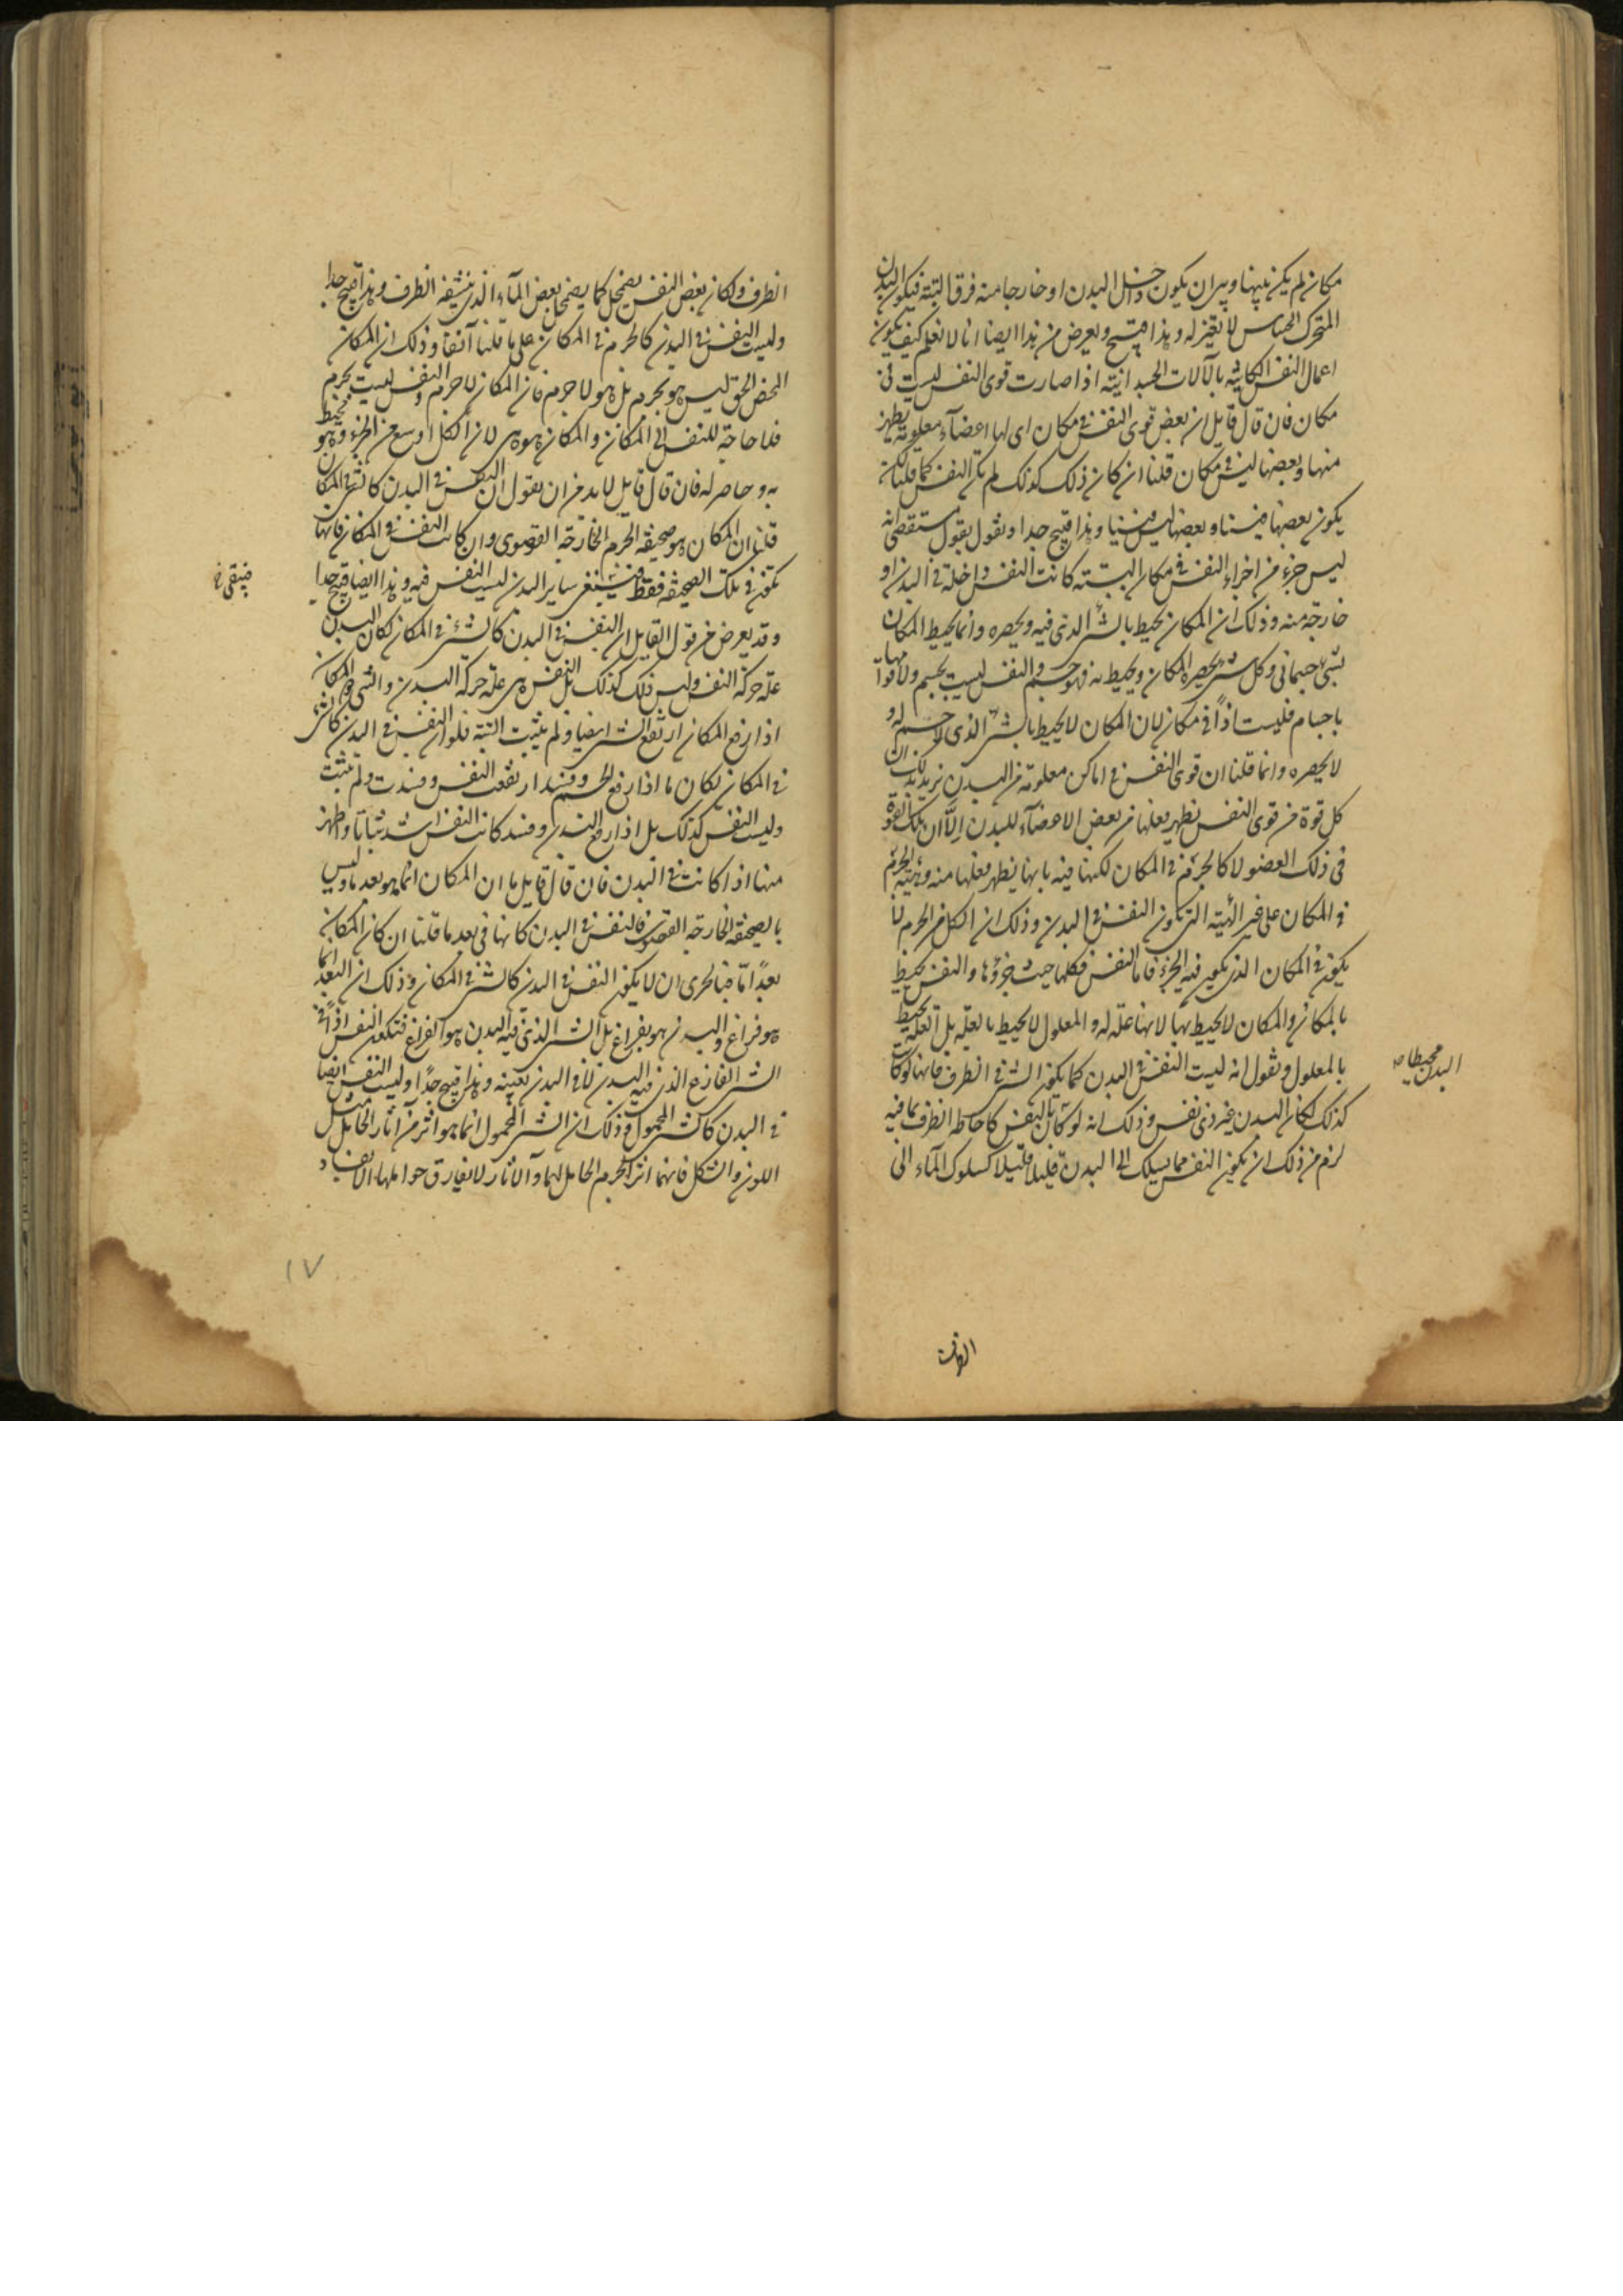 مكان لم يكن بينها وبين ان يكون داخل البدن او خارجا منه فرق البتة فيكون البدن
المتحرك الحساس لا نفس له وهذا قبيح ويعرض من هذا ايضا انا لا نعلم كيف يكون
اعمال النفس الكائنة بالآلات الجسدانية اذا صارت قوى النفس ليست فى
مكان فان قال قايل ان بعض قوى النفس فى مكان اى لها اعضآء معلومة يظهر
منها وبعضها ليس فى مكان قلنا ان كان ذلك كذلك لم تكن النفس كما قلنا لكن
يكون بعضها فينا وبعضها ليس فينا وهذا قبيح جدا ونقول بقول مستقصى انه
ليس جزء من اجزاء النفس فى مكان البتة كانت النفس داخلة فى البدن او
خارجة منه وذلك ان المكان يحيط بالشئ الذى فيه ويحصره وانما يحيط المكان
بشئ جسمانى وكل شئ يحصره المكان ويحيط به فهو جسم والنفس ليست بجسم ولا قواها
باجسام فليست اذاً فى مكان لان المكان لا يحيط بالشئ الذى لا جسم له و
لا يحصره وانما قلنا ان قوى النفس فى اماكن معلومة من البدن نريد بذلك ان
كل قوة من قوى النفس يظهر فعلها من بعض الاعضآء للبدن الّا ان تلك القوة
فى ذلك العضو لا كالجرم فى المكان لكنها فيه بانها يظهر فعلها منه وهيئة الجرم
فى المكان على غير الهيئة التى تكون النفس فى البدن وذلك ان الكل من الجرم لا
يكون فى المكان الذى يكون فيه الجزء فاما النفس فكلها حيث جزؤها والنفس تحيط
بالمكان والمكان لا يحيط بها لانها علة له والمعلول لا يحيط بالعلة بل العلة تحيط
بالمعلول ونقول انه ليست النفس فى البدن كما يكون الشئ فى الظرف فانها لو كانت
كذلك لكان البدن غير ذى نفس وذلك انه لو كان البدن محيطا بالنفس كاحاطة الظرف بما فيه
لزم من ذلك ان تكون النفس مما يسلك الى البدن قليلا قليلا كسلوك المآء الى
البدن محيطا
الظرف
الظرف ولكان بعض النفس يضمحل كما يضمحل بعض المآء الذى ينشفه الظرف وهذا قبيح جدا
وليست النفس فى البدن كالجرم فى المكان على ما قلنا آنفا وذلك ان المكان
المحض الحق ليس هو بجرم بل هو لا جرم فان كان المكان لا جرم والنفس ليست بجرم
فلا حاجة للنفس الى المكان والمكان هو هى لان الكل اوسع من الجزء وهو محيط
به وحاصر له فان قال قايل لا بد من ان نقول ان النفس فى البدن كالشئ فى المكان
قلنا ان المكان هو صحيفة الجرم الخارجة القصوى وان كانت النفس فى المكان فانها
تكون فى تلك الصحيفة فقط فيبقى ساير البدن ليست النفس فيه وهذا ايضا قبيح جدا
فيبقى خ
وقد يعرض من قول القايل ان النفس فى البدن كالشئ فى المكان لكان البدن
علة حركة النفس وليس ذلك كذلك بل النفس هى علة حركة البدن والشئ ذو المكان
اذا رفع المكان ارتفع الشئ ايضا ولم يثبت البتة فلو ان النفس فى البدن كالشئ
فى المكان لكان ما اذا رفع الجسم وفسد ارتفعت النفس وفسدت ولم تثبت
وليست النفس كذلك بل اذا رفع البدن وفسد كانت النفس اشد ثباتا واظهر
منها اذا كانت فى البدن فان قال قايل ما ان المكان انما هو بعد ما وليس
بالصحيفة الخارجة القصوى فالنفس فى البدن كانها فى بعد ما قلنا ان كان المكان
بعداً امّا فبالحرى ان لا يكون النفس فى البدن كالشئ فى المكان وذلك ان البعد انما
هو فراغ والبدن ليس هو بفراغ بل الشئ الذى فيه البدن هو الفراغ فتكون النفس اذاً فى
الشئ الفارغ الذى فيه البدن لا فى البدن بعينه وهذا قبيح جداً وليست النفس ايضا
فى البدن كالشئ المحمول وذلك ان الشئ المحمول انما هو اثر من آثار الحامل مثل
اللون والشكل فانهما اثر الجرم الحامل لهما والآثار لا تفارق حواملها الا بفساد
١٧